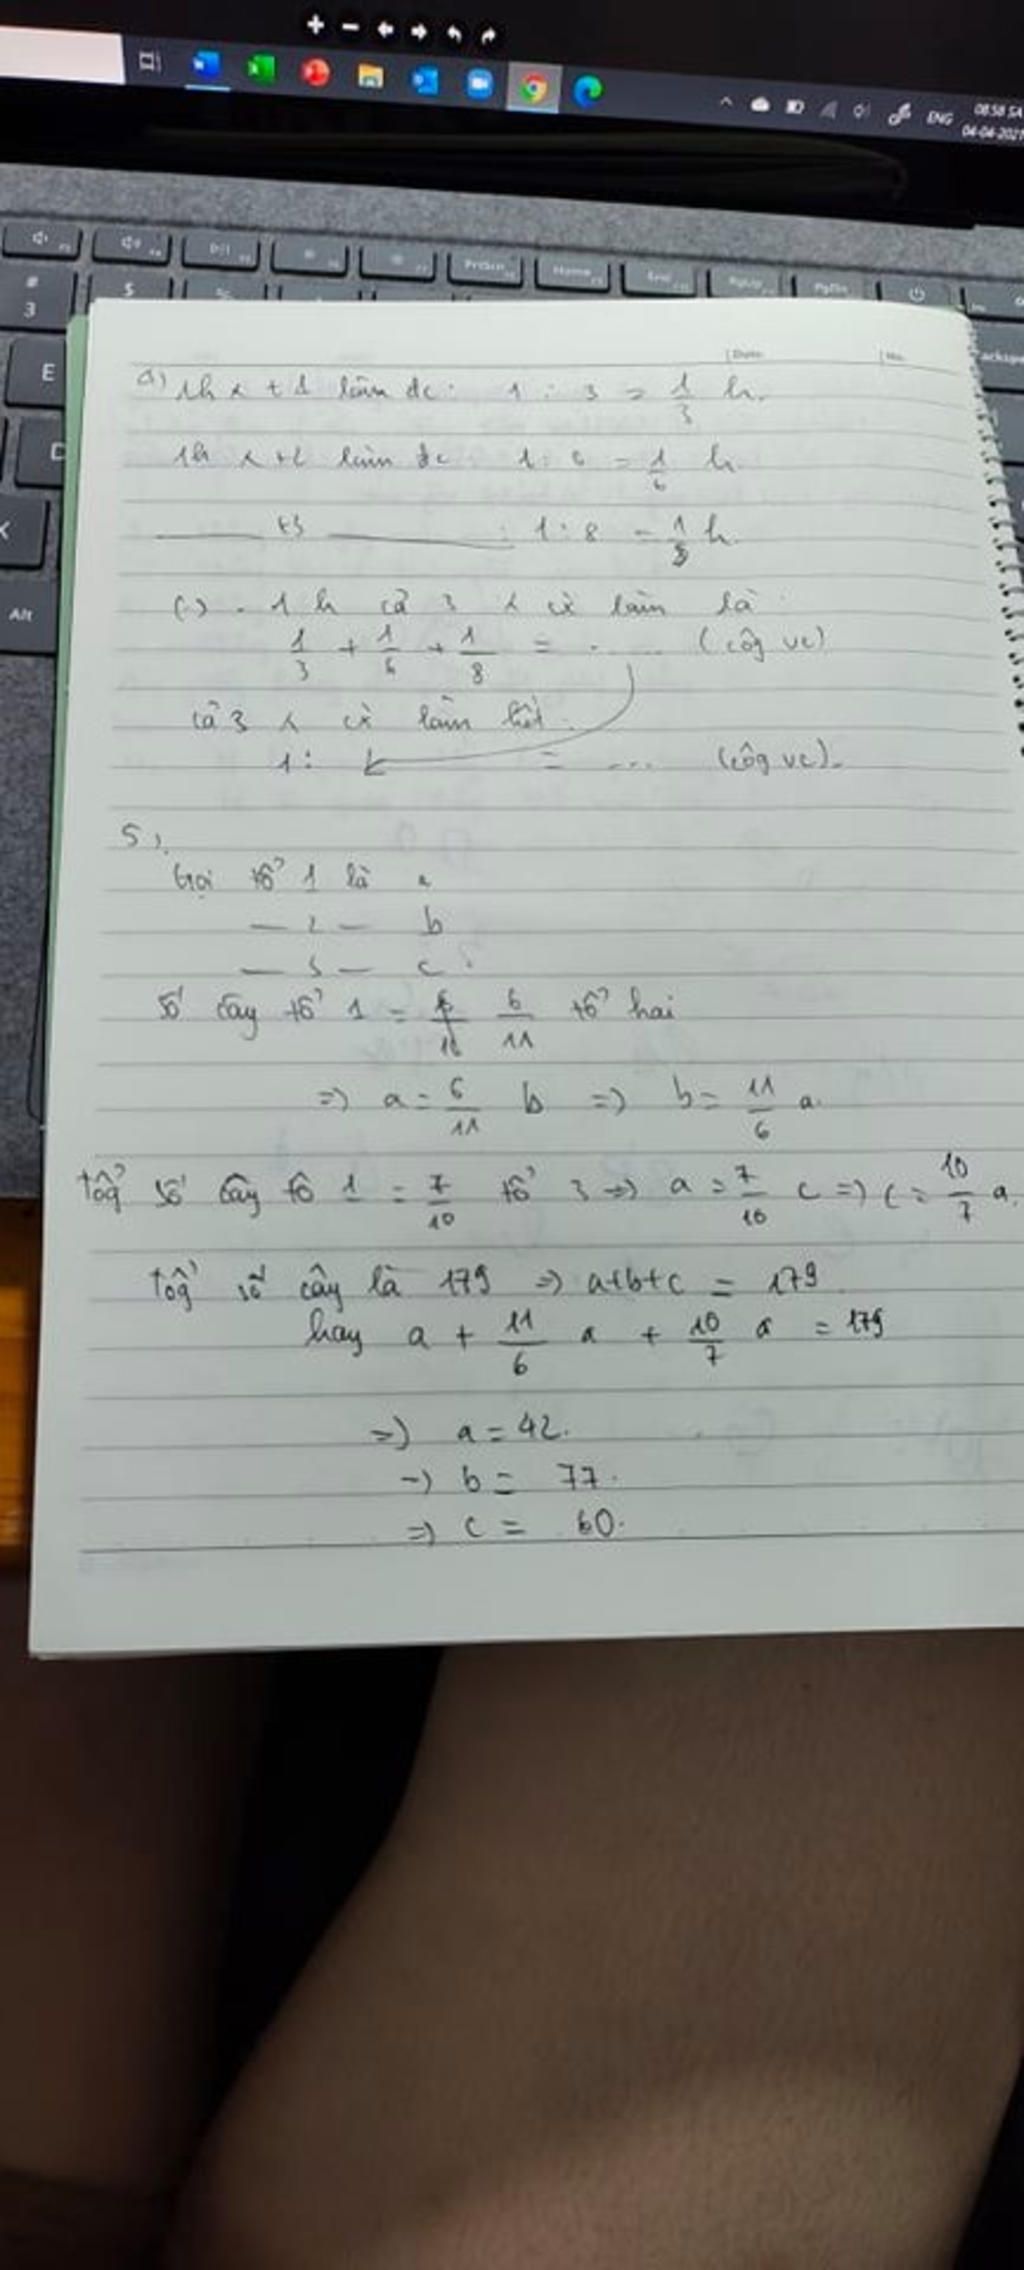 ENG
08:58 SA
04-04-2021
PrtScn
Home
End
PgUp
PgDn
#
3
$
%
E
Alt
Date
No.
a) 1h x t 1 làm đc: 1 : 3 = 1/3 h.
1h x t2 làm đc 1 : 6 = 1/6 h
t3 : 1 : 8 = 1/8 h
1 h cả 3 x cx làm là
1/3 + 1/6 + 1/8 = ..... (côg vc)
cả 3 x cx làm hết:
1 : = ... (côg vc).
5).
Gọi tổ 1 là a
— 2 — b
— 3 — c.
Số cây tổ 1 = 6/11 tổ hai
=) a = 6/11 b =) b = 11/6 a.
Tổg số cây tổ 1 = 7/10 tổ 3 =) a = 7/10 c =) c = 10/7 a.
Tổg số cây là 179 =) a+b+c = 179
hay a + 11/6 a + 10/7 a = 179
=) a = 42.
=) b = 77.
=) c = 60.